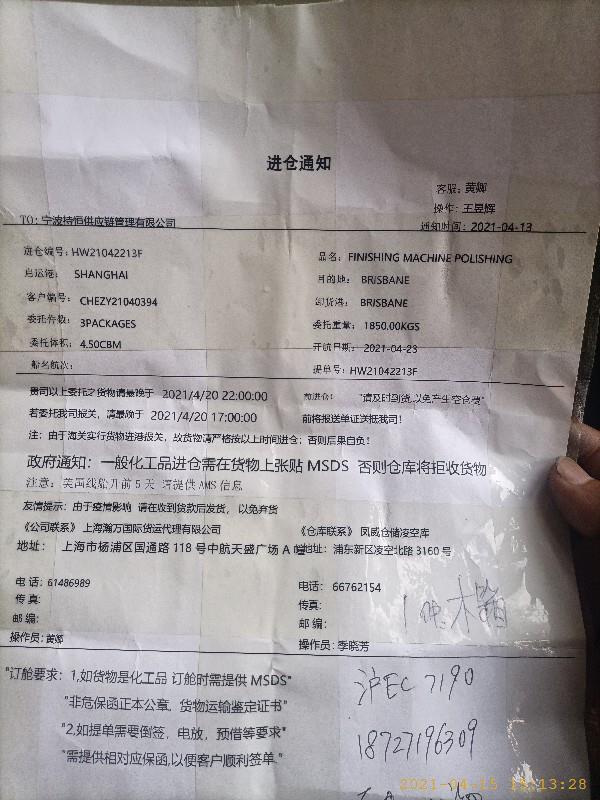 进仓通知
客服：黄卿
操作：王昱辉
TO：宁波特恒供应链管理有限公司
通知时间：2021-04-13
进仓编号：HW21042213F
品名：FINISHING MACHINE POLISHING
启运港： SHANGHAI
目的地： BRISBANE
客户编号： CHEZY21040394
卸货港： BRISBANE
委托件数： 3PACKAGES
委托重量： 1850.00KGS
委托体积： 4.50CBM
开航日期： 2021-04-23
船名航次：
提单号：HW21042213F
贵司以上委托之货物请最晚于 2021/4/20 22:00:00 前进仓！ "请及时到货,以免产生空仓费"
若委托我司报关，请最晚于 2021/4/20 17:00:00 前将报送单证送抵我司！
注：由于海关实行货物进港报关，故货物请严格按以上时间进仓；否则后果自负！
政府通知：一般化工品进仓需在货物上张贴 MSDS 否则仓库将拒收货物
注意：美国线船开前 5 天 请提供 AMS 信息
友情提示：由于疫情影响 请在收到货款后发货，以免弃货
《公司联系》上海瀚万国际货运代理有限公司
《仓库联系》 凤威仓储凌空库
地址： 上海市杨浦区国通路 118 号中航天盛广场 A
地址：浦东新区凌空北路 3160 号
电 话：61486989
电话： 66762154
传 真：
传真：
邮 编：
邮 编：
1 木箱
操作员：黄卿
操作员：季晓芳
"订舱要求：1,如货物是化工品 订舱时需提供 MSDS"
"非危保函正本公章，货物运输鉴定证书"
"2,如提单需要倒签，电放，预借等要求"
"需提供相对应保函,以便客户顺利签单."
沪EC 7190
18727196309
2021-04-15 15:13:28